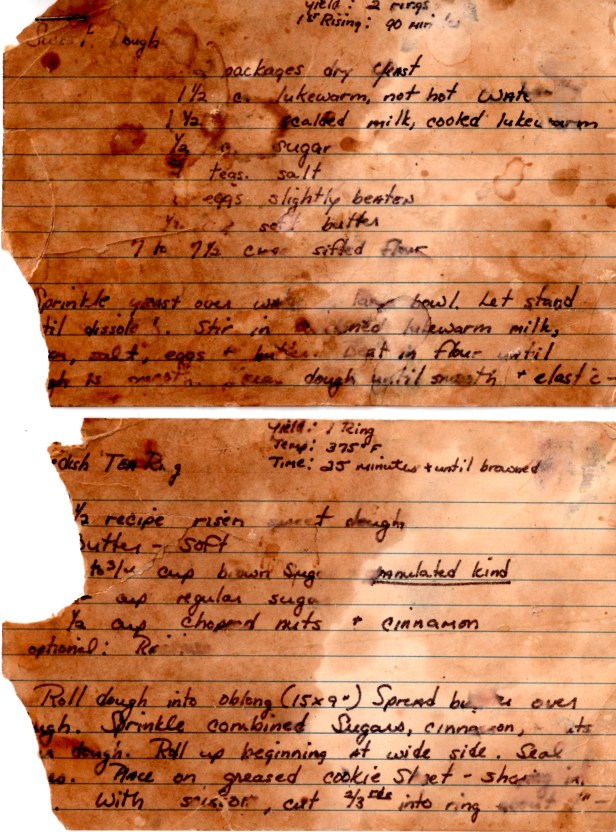 Yield: 2 rings
1st Rising: 90 min
Sweet Dough
packages dry yeast
1 1/2 c. lukewarm, not hot water
1 1/2 scalded milk, cooled lukewarm
1/2 c. sugar
teas. salt
eggs slightly beaten
soft butter
7 to 7 1/2 cups sifted flour
Sprinkle yeast over large bowl. Let stand
til dissolve. Stir in lukewarm milk,
salt, eggs + butter. Beat in flour until
is smooth. dough until smooth + elastic -
Yield: 1 Ring
Temp: 375°F
dish Tea Ring
Time: 25 minutes + until browned
1/2 recipe risen sweet dough
Butter - soft
to 3/4 cup brown sugar kind
cup regular sugar
1/2 cup chopped nuts + cinnamon
optional:
Roll dough into oblong (15x9") Spread butter over
Sprinkle combined Sugars, cinnamon,
dough. Roll up beginning at wide side. Seal
Place on greased cookie Sheet -
With scissor, cut 2/3rds into ring